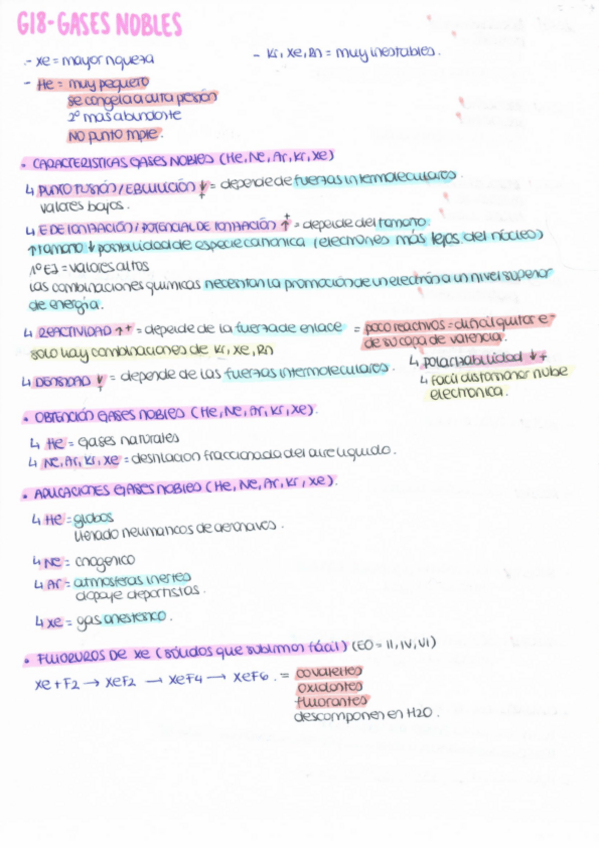 G18-GASES NOBLES
- Xe = mayor riqueza
- Kr, Xe, Rn = muy inestables.
- He = muy pequeño
se congela a alta presión
2º más abundante
No punto triple.
• CARACTERISTICAS GASES NOBLES (He, Ne, Ar, Kr, Xe)
↳ PUNTO FUSIÓN/EBULLICIÓN ↓+ = depende de fuerzas intermoleculares.
valores bajos.
↳ E DE IONIZACIÓN/POTENCIAL DE IONIZACIÓN ↑+ = depende del tamaño.
↑tamaño ↓ posibilidad de especie cationica (electrones más lejos del núcleo)
1º EI = valores altos
las combinaciones químicas necesitan la promoción de un electrón a un nivel superior
de energía.
↳ REACTIVIDAD ↑+ = depende de la fuerza de enlace = poco reactivos = dificil quitar e-
de su capa de valencia.
solo hay combinaciones de Kr, Xe, Rn
↳ polarizabilidad ↓+
↳ DENSIDAD ↓+ = depende de las fuerzas intermoleculares.
↳ fácil distorsionar nube
electronica.
• OBTENCIÓN GASES NOBLES (He, Ne, Ar, Kr, Xe).
↳ He = gases naturales
↳ Ne, Ar, Kr, Xe = destilación fraccionada del aire liquido.
• APLICACIONES GASES NOBLES (He, Ne, Ar, Kr, Xe).
↳ He = globos
llenado neumaticos de aeronaves.
↳ Ne = criogenico
↳ Ar = atmosferas inertes
dopaje deportistas.
↳ Xe = gas anestesico.
• FLUORUROS DE Xe (sólidos que subliman fácil) (EO = II, IV, VI)
Xe + F2 → XeF2 → XeF4 → XeF6. = covalentes
oxidantes
fluorantes
descomponen en H2O.